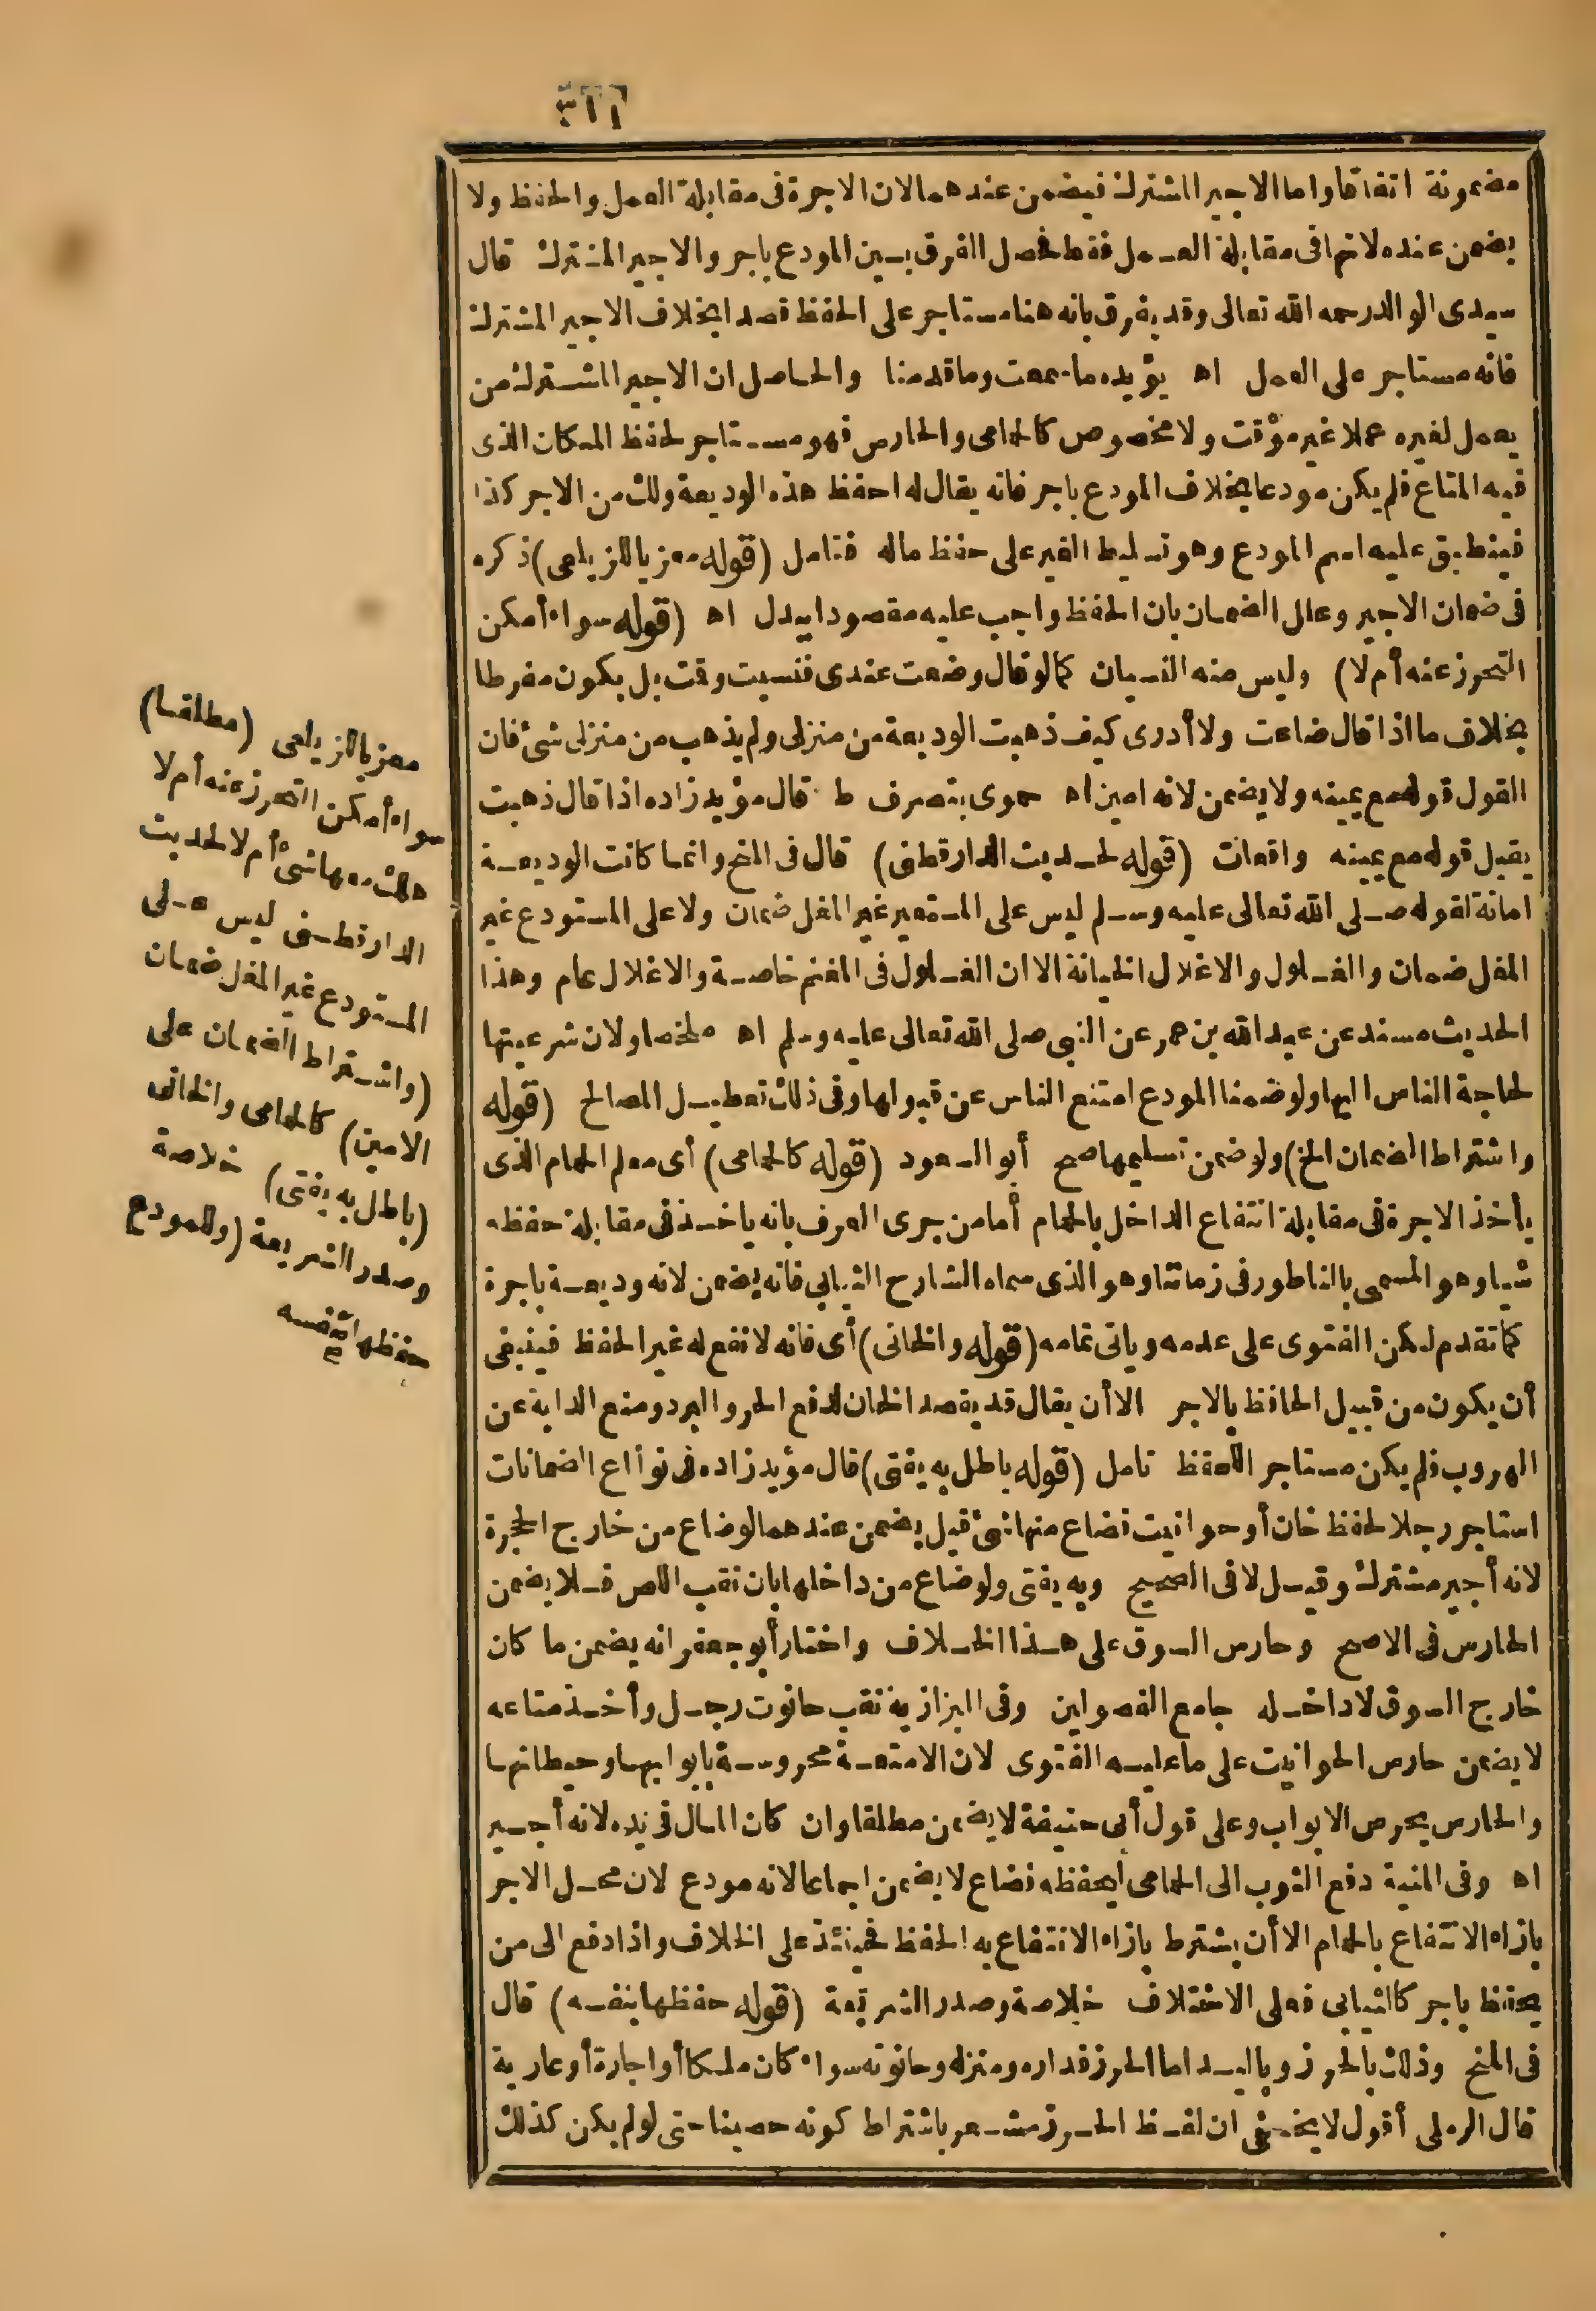 مضمونة اتفاقا واما الاجير المشترك فيضمن عندهما لان الاجرة فى مقابلة العمل والحفظ ولا
يضمن عنده لانها فى مقابلة العمل فقط فحصل الفرق بين المودع باجر والاجير المشترك قال
سيدى الوالد رحمه الله تعالى وقد يفرق بانه هنا مستاجر على الحفظ قصدا بخلاف الاجير المشترك
فانه مستاجر على العمل اه يؤيده ما سمعت وما قدمنا والحاصل ان الاجير المشترك من
يعمل لغيره عملا غير مؤقت ولا مخصوص كالحمامى والحارس فهو مستاجر لحفظ المكان الذى
فيه المتاع فلم يكن مودعا بخلاف المودع باجر فانه يقال له احفظ هذه الوديعة ولك من الاجر كذا
فينطبق عليه اسم المودع وهو تسليط الغير على حفظ ماله فتامل (قوله معزيا للزيلعى) ذكره
فى ضمان الاجير وعلل الضمان بان الحفظ واجب عليه مقصودا ببدل اه (قوله سواء أمكن
التحرز عنه أم لا) وليس منه النسيان كما لو قال وضعت عندى فنسيت وقت بل يكون مفرطا
بخلاف ما اذا قال ضاعت ولا أدرى كيف ذهبت الوديعة من منزلى ولم يذهب من منزلى شئ فان
القول قوله مع يمينه ولا يضمن لانه امين اه حموى بتصرف ط قال مؤيد زاده اذا قال ذهبت
يقبل قوله مع يمينه واقعات (قوله لحديث الدارقطنى) قال فى المنح وانما كانت الوديعة
امانة لقوله صلى الله تعالى عليه وسلم ليس على المستعير غير المغل ضمان ولا على المستودع غير
المغل ضمان والغلول والاغلال الخيانة الا ان الغلول فى المغنم خاصة والاغلال عام وهذا
الحديث مسند عن عبد الله بن عمر عن النبى صلى الله تعالى عليه وسلم اه ملخصا ولان شرعيتها
لحاجة الناس اليها ولو ضمنا المودع امتنع الناس عن قبولها وفى ذلك تعطيل المصالح (قوله
واشتراط الضمان الخ) ولو ضمن تسليمها صح أبو السعود (قوله كالحمامى) أى معلم الحمام الذى
يأخذ الاجرة فى مقابلة انتفاع الداخل بالحمام أما من جرى العرف بانه ياخذ فى مقابلة حفظه
شيا وهو المسمى بالناطور فى زماننا وهو الذى سماه الشارح الثيابى فانه يضمن لانه وديعة باجرة
كما تقدم لكن الفتوى على عدمه وياتى تمامه (قوله والخانى) أى فانه لا نفع له غير الحفظ فينبغى
أن يكون من قبيل الحافظ بالاجر الا أن يقال قد يقصد الخان لدفع الحر والبرد ومنع الدابة عن
الهروب فلم يكن مستاجر اللحفظ تامل (قوله باطل به يفتى) قال مؤيد زاده فى أنواع الضمانات
استاجر رجلا لحفظ خان أو حوانيت فضاع منها شئ قيل يضمن عندهما لو ضاع من خارج الحجرة
لانه أجير مشترك وقيل لا فى الصحيح وبه يفتى ولو ضاع من داخلها بان نقب اللص فلا يضمن
الحارس فى الاصح وحارس السوق على هذا الخلاف واختار أبو جعفر انه يضمن ما كان
خارج السوق لا داخله جامع الفصولين وفى البزازية نقب حانوت رجل وأخذ متاعه
لا يضمن حارس الحوانيت على ما عليه الفتوى لان الامتعة محروسة بابوابها وحيطانها
والحارس يحرس الابواب وعلى قول أبى حنيفة لا يضمن مطلقا وان كان المال فى يده لانه أجير
اه وفى المنية دفع الثوب الى الحمامى ليحفظه فضاع لا يضمن اجماعا لانه مودع لان محل الاجر
بازاء الانتفاع بالحمام الا أن يشترط بازاء الانتفاع به الحفظ فحينئذ على الخلاف واذا دفع الى من
يحتفظ باجر كالثيابى فعلى الاختلاف خلاصة وصدر الشريعة (قوله حفظها بنفسه) قال
فى المنح وذلك بالحرز وباليد اما الحرز فداره ومنزله وحانوته سواء كان ملكا أو اجارة أو عارية
قال الرملى أقول لا يخفى ان لفظ الحرز مشعر باشتراط كونه حصينا حتى لو لم يكن كذلك
معزيا للزيلعى (مطلقا)
سواء أمكن التحرز عنه أم لا
هلك معها شئ أم لا لحديث
الدارقطنى ليس على
المستودع غير المغل ضمان
(واشتراط الضمان على
الامين) كالحمامى والخانى
(باطل به يفتى) خلاصة
وصدر الشريعة (وللمودع
حفظها بنفسه